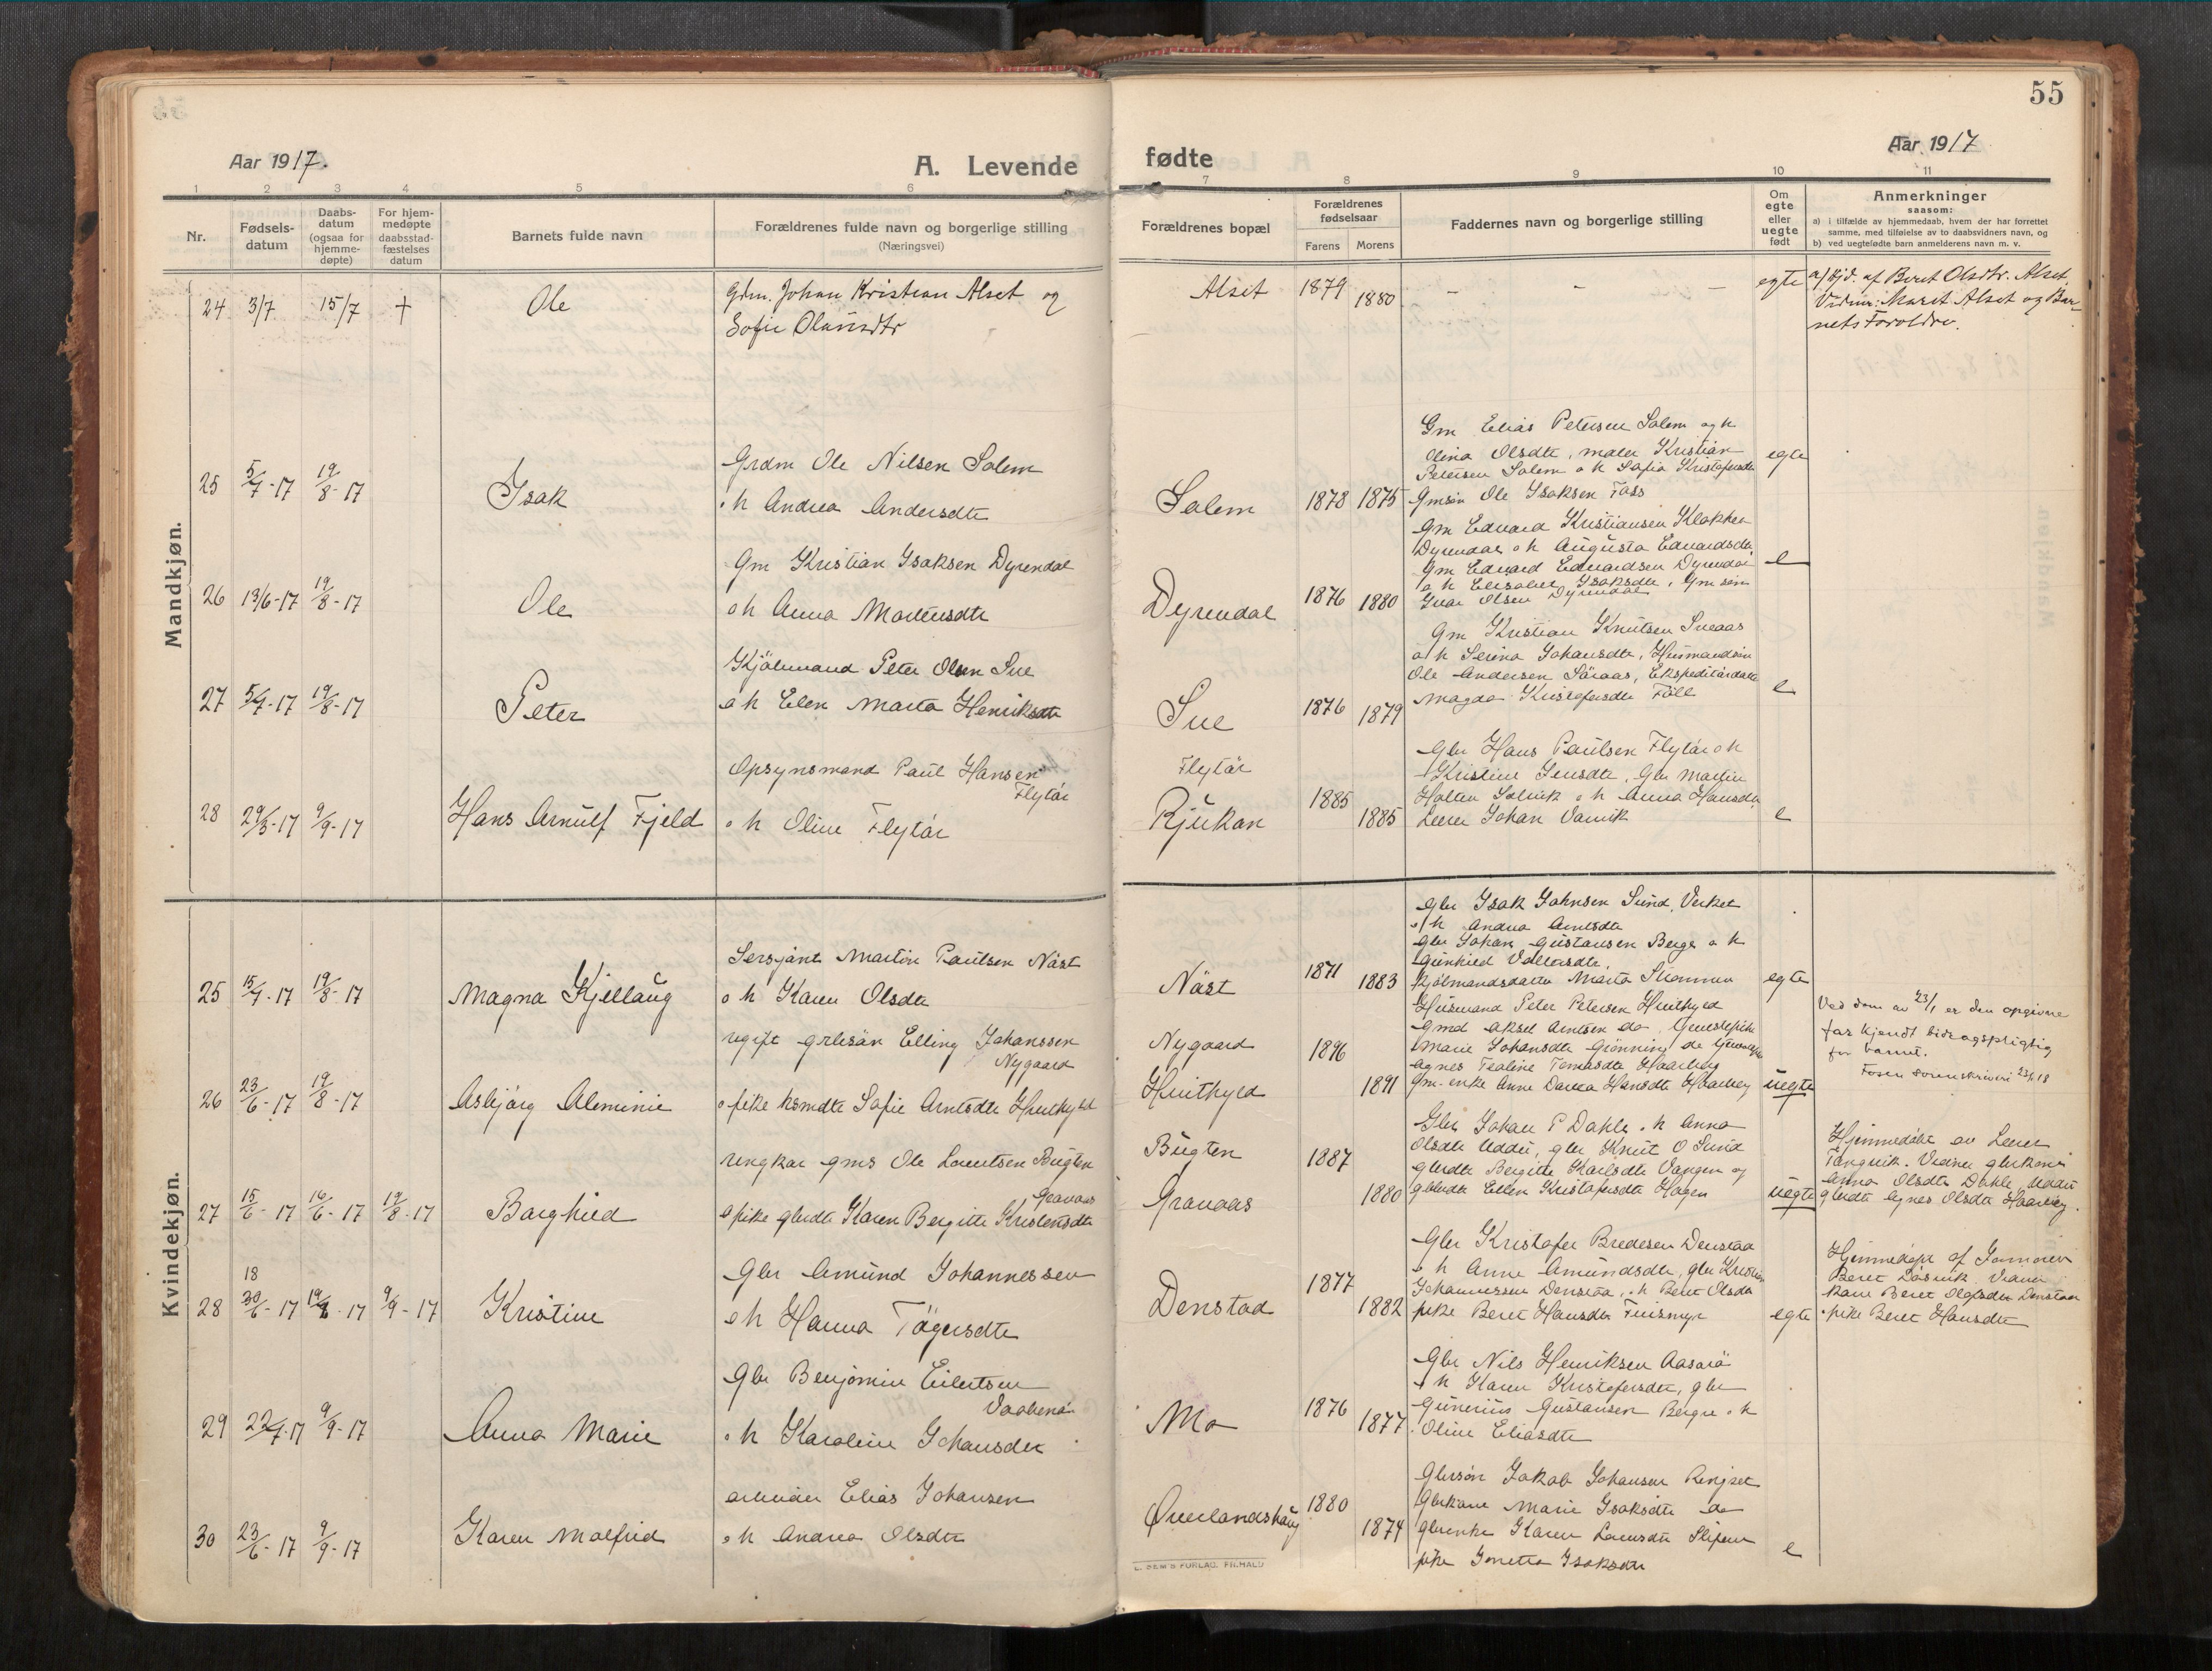 55
Aar 1917.
A. Levende
fødte
Aar 1917
1 2 3 4 5 6 7 8 9 10 11
Nr.
Fødsels-
datum
Daabs-
datum
(ogsaa for
hjemme-
døpte)
For hjem-
medøpte
daabsstad-
fæstelses
datum
Barnets fulde navn
Forældrenes fulde navn og borgerlige stilling
(Næringsvei)
Forældrenes bopæl
Forældrenes
fødselsaar
Farens Morens
Faddernes navn og borgerlige stilling
Om
egte
eller
uegte
født
Anmerkninger
saasom:
a) i tilfælde av hjemmedaab, hvem der har forrettet
samme, med tilføielse av to daabsvidners navn, og
b) ved uegtefødte barn anmelderens navn m. v.
Mandkjøn.
24 3/7 15/7 + Ole
Grdm. Johan Kristian Alset og
Sofie Olausdtr
Alset 1879 1880 - - - egte
a/ Hjd. af Beret Olsdtr. Alset
Vidner: Marit Alset og Bar-
nets Foroldre.
25 5/7-17 19/8-17 Isak
Grdm Ole Nilsen Salem
o h Andrea Andersdtr
Salem 1878 1875
Gm Elias Petersen Salem og h
Olina Olsdtr, maler Kristian
Petersen Salem o h Sofia Kristofersdtr
Gmsøn Ole Isaksen Foss
egte
26 13/6-17 19/8-17 Ole
Gm Kristian Isaksen Dyrendal
o h Anna Martensdtr
Dyrendal 1876 1880
Gm Edvard Kristiansen Klakken
Dyrendal o h Augusta Edvardsdtr
Gm Edvard Edvardsen Dyrendal
o h Elisabet Isaksdtr, Gmsøn
Ivar Olsen Dyrendal
e
27 5/7-17 19/8-17 Peter
Kjölmand Peter Olsen Sue
o h Elen Marta Henriksdtr
Sue 1876 1879
Gm Kristian Knutsen Sneaas
o h Serina Johansdtr, Husmandsøn
Ole Andersen Söraas, Ekspeditördatter
Magda Kristofersdtr Föll
e
28 29/3-17 9/9-17 Hans Arnulf Fjeld
Opsynsmand Paul Hansen
Flytår
o h Oline Flytår
Flytår
Rjukan 1885 1885
Gbr Hans Paulsen Flytår o h
Kristine Jensdtr, Gbr Martin
Holten Solvik o h Anna Hansdtr
Lærer Johan Vannvik
e
Kvindekjøn.
25 15/7-17 19/8-17 Magna Kjellaug
Sersjant Martin Paulsen Näst
o h Karen Olsdtr
Näst 1871 1883
Gbr Isak Johnsen Sund, Verket
o h Andrea Arntsdtr
Gbr Johan Gustavsen Berge o h
Gunhild
Kjölmandsdatter Marta Strømmen
egte
26 23/6-17 19/8-17 Asbjörg Aleminie
ugift grbrsön Elling Johanssen
Nygaard
o pike hsmdtr Sofie Arntsdtr Huithyld
Nygaard
Huithyld 1896 1891
Husmand Peter Petersen Huithyld
Gmd Aksel Arntsen do, tjenestepike
Marie Johansdtr Grönning do
Agnes Tealine Tomasdtr Haarberg
Gm-enke Anne Dartea Hansdtr Haarberg
uegte
Ved dom av 23/1 er den opgivne
far kjendt bidragspligtig
for barnet.
Fosen sorenskriveri 23/1 18
27 15/6-17 16/6-17 19/8-17 Borghild
ungkar gms Ole Lorentsen Bugten
Granaas
o pike gbrdtr Karen Bergitte Kristensdtr
Bugten
Granaas 1887 1880
Gbr Johan P Dahle o h Anna
Olsdtr Uddu, gbr Knut O Sund
gbrdtr Bergitte Karlsdtr Vangen og
gbrdtr Ellen Kristofersdtr Hagen
uegte
Hjemmedöbt av Lærer
Tangvik. Vidner gbrkone
Anna Olsdtr Dahle, Uddu
gbrdtr Agnes Olsdtr Haarberg.
28 18 30/6-17 19/8-17 9/9-17 Kristine
Gbr Amund Johannessen
o h Hanna Tögersdtr
Denstad 1877 1882
Gbr Kristofer Bredesen Denstad
o h Anne Amundsdtr, gbr Kristian
Johannessen Denstad, o h Beret Olsdtr
pike Beret Hansdtr Finsmyr
egte
Hjemmedøpt af Jormoren
Beret Vidner
kone Beret Olofsdtr Denstad
pike Beret Hansdtr
29 22/7-17 9/9-17 Anna Marie
Gbr Benjamin Eilertsen
o h Karoline Johansdtr
Mo 1876 1877
Gbr Nils Henriksen Aasarö
o h Karen Kristofersdtr, gbr
Gunerius Gustavsen Berge o h
Oline Eliasdtr
30 23/6-17 9/9-17 Karen Malfrid
arbeider Elias Johansen
o h Andrea Olsdtr
Øverlandshaug 1880 1874
Gbrsön Jakob Johansen Ringset
Gbrkone Marie Isaksdtr do
gbrenke Karen Larensdtr Slipern
pike Jonetta Isaksdtr
e
E. SEM'S FORLAG, FR.HALD